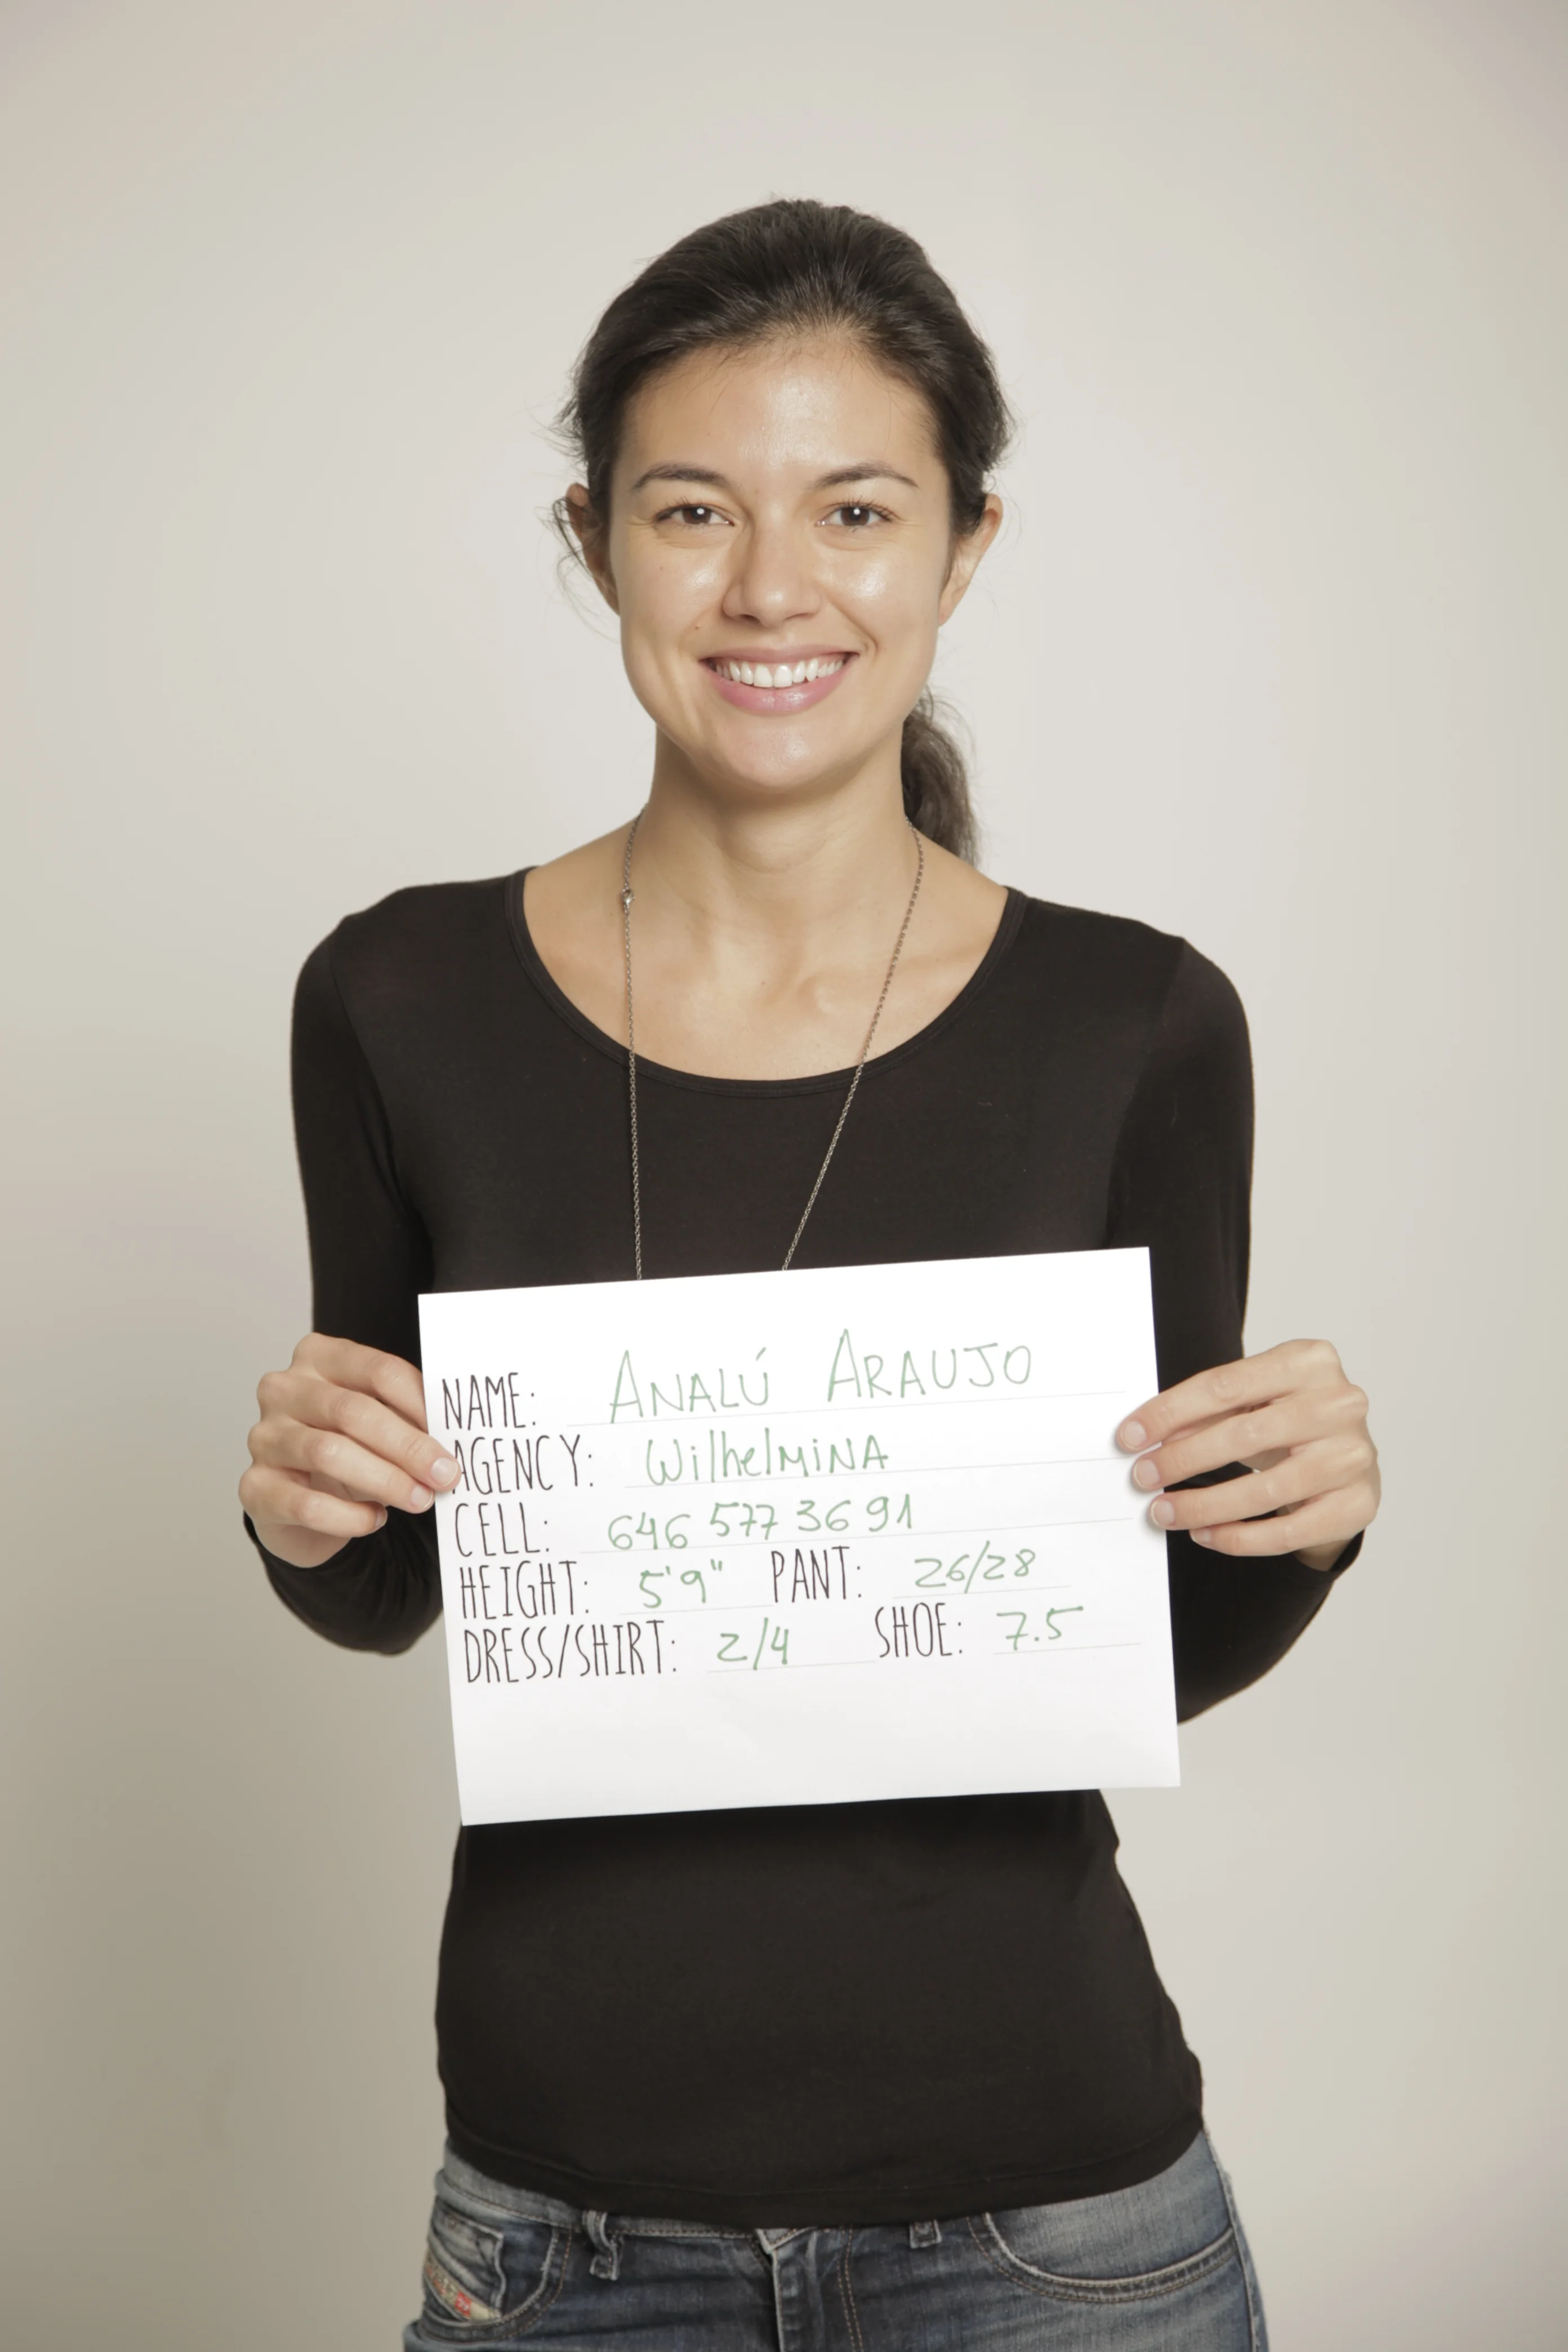 NAME: ANALÚ ARAUJO
AGENCY: WilhelmiNA
CELL: 646 577 3691
HEIGHT: 5'9" PANT: 26/28
DRESS/SHIRT: 2/4 SHOE: 7.5